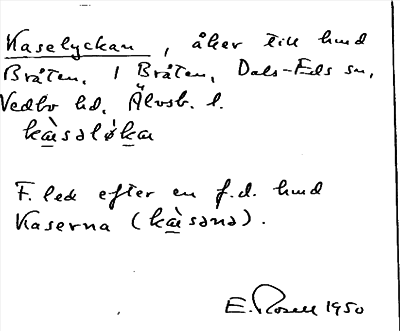 Kaselyckan, åker till hmd
Bråten, 1 Bråten, Dals-Eds sn,
Vedbo hd, Älvsb. l.
kàsəløka
F. led efter en f.d. hmd
Kaserna (kàsəna).
E. Rosell 1950